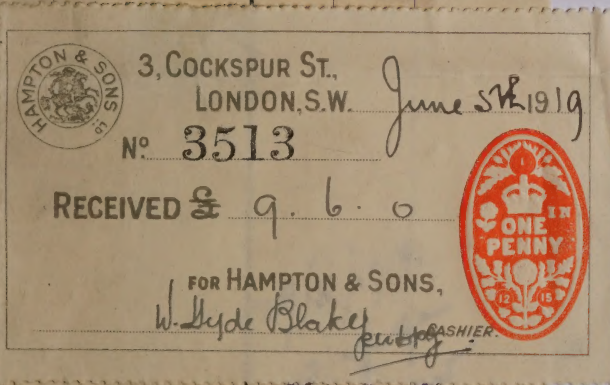 HAMPTON & SONS LD
3, COCKSPUR ST.,
LONDON, S.W. June 5th 1919
No. 3513
RECEIVED £ 9. 6. 0
IN
ONE
PENNY
12 15
FOR HAMPTON & SONS,
W. Hyde Blake
CASHIER.